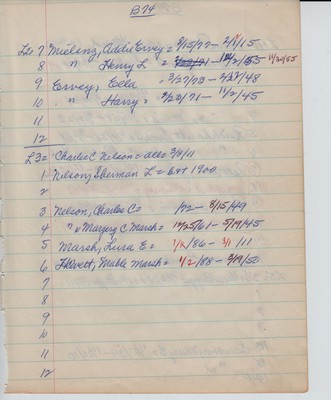 B74
Lts. 7 Mielenz, Addie Ervey = 8/15/77 - 2/1/15
8 " Henry L = 11/2/55 11/20/55
9 Ervey, Eela = 3/27/73 - 2/27/48
10 " Harry = 2/23/71 - 11/2/45
11
12
L3 = Charles C Nelson = deed 3/8/11
1 Nelson, Sherman L = Est 1900
2
3 Nelson, Charles C = /72 - 8/15/49
4 " Margery C Marsh = 10/25/61 - 5/19/45
5 Marsh, Lura E = 1/2/86 - 3/1/11
6 Marsh = 1/2/88 - 2/19/50
7
8
9
10
11
12